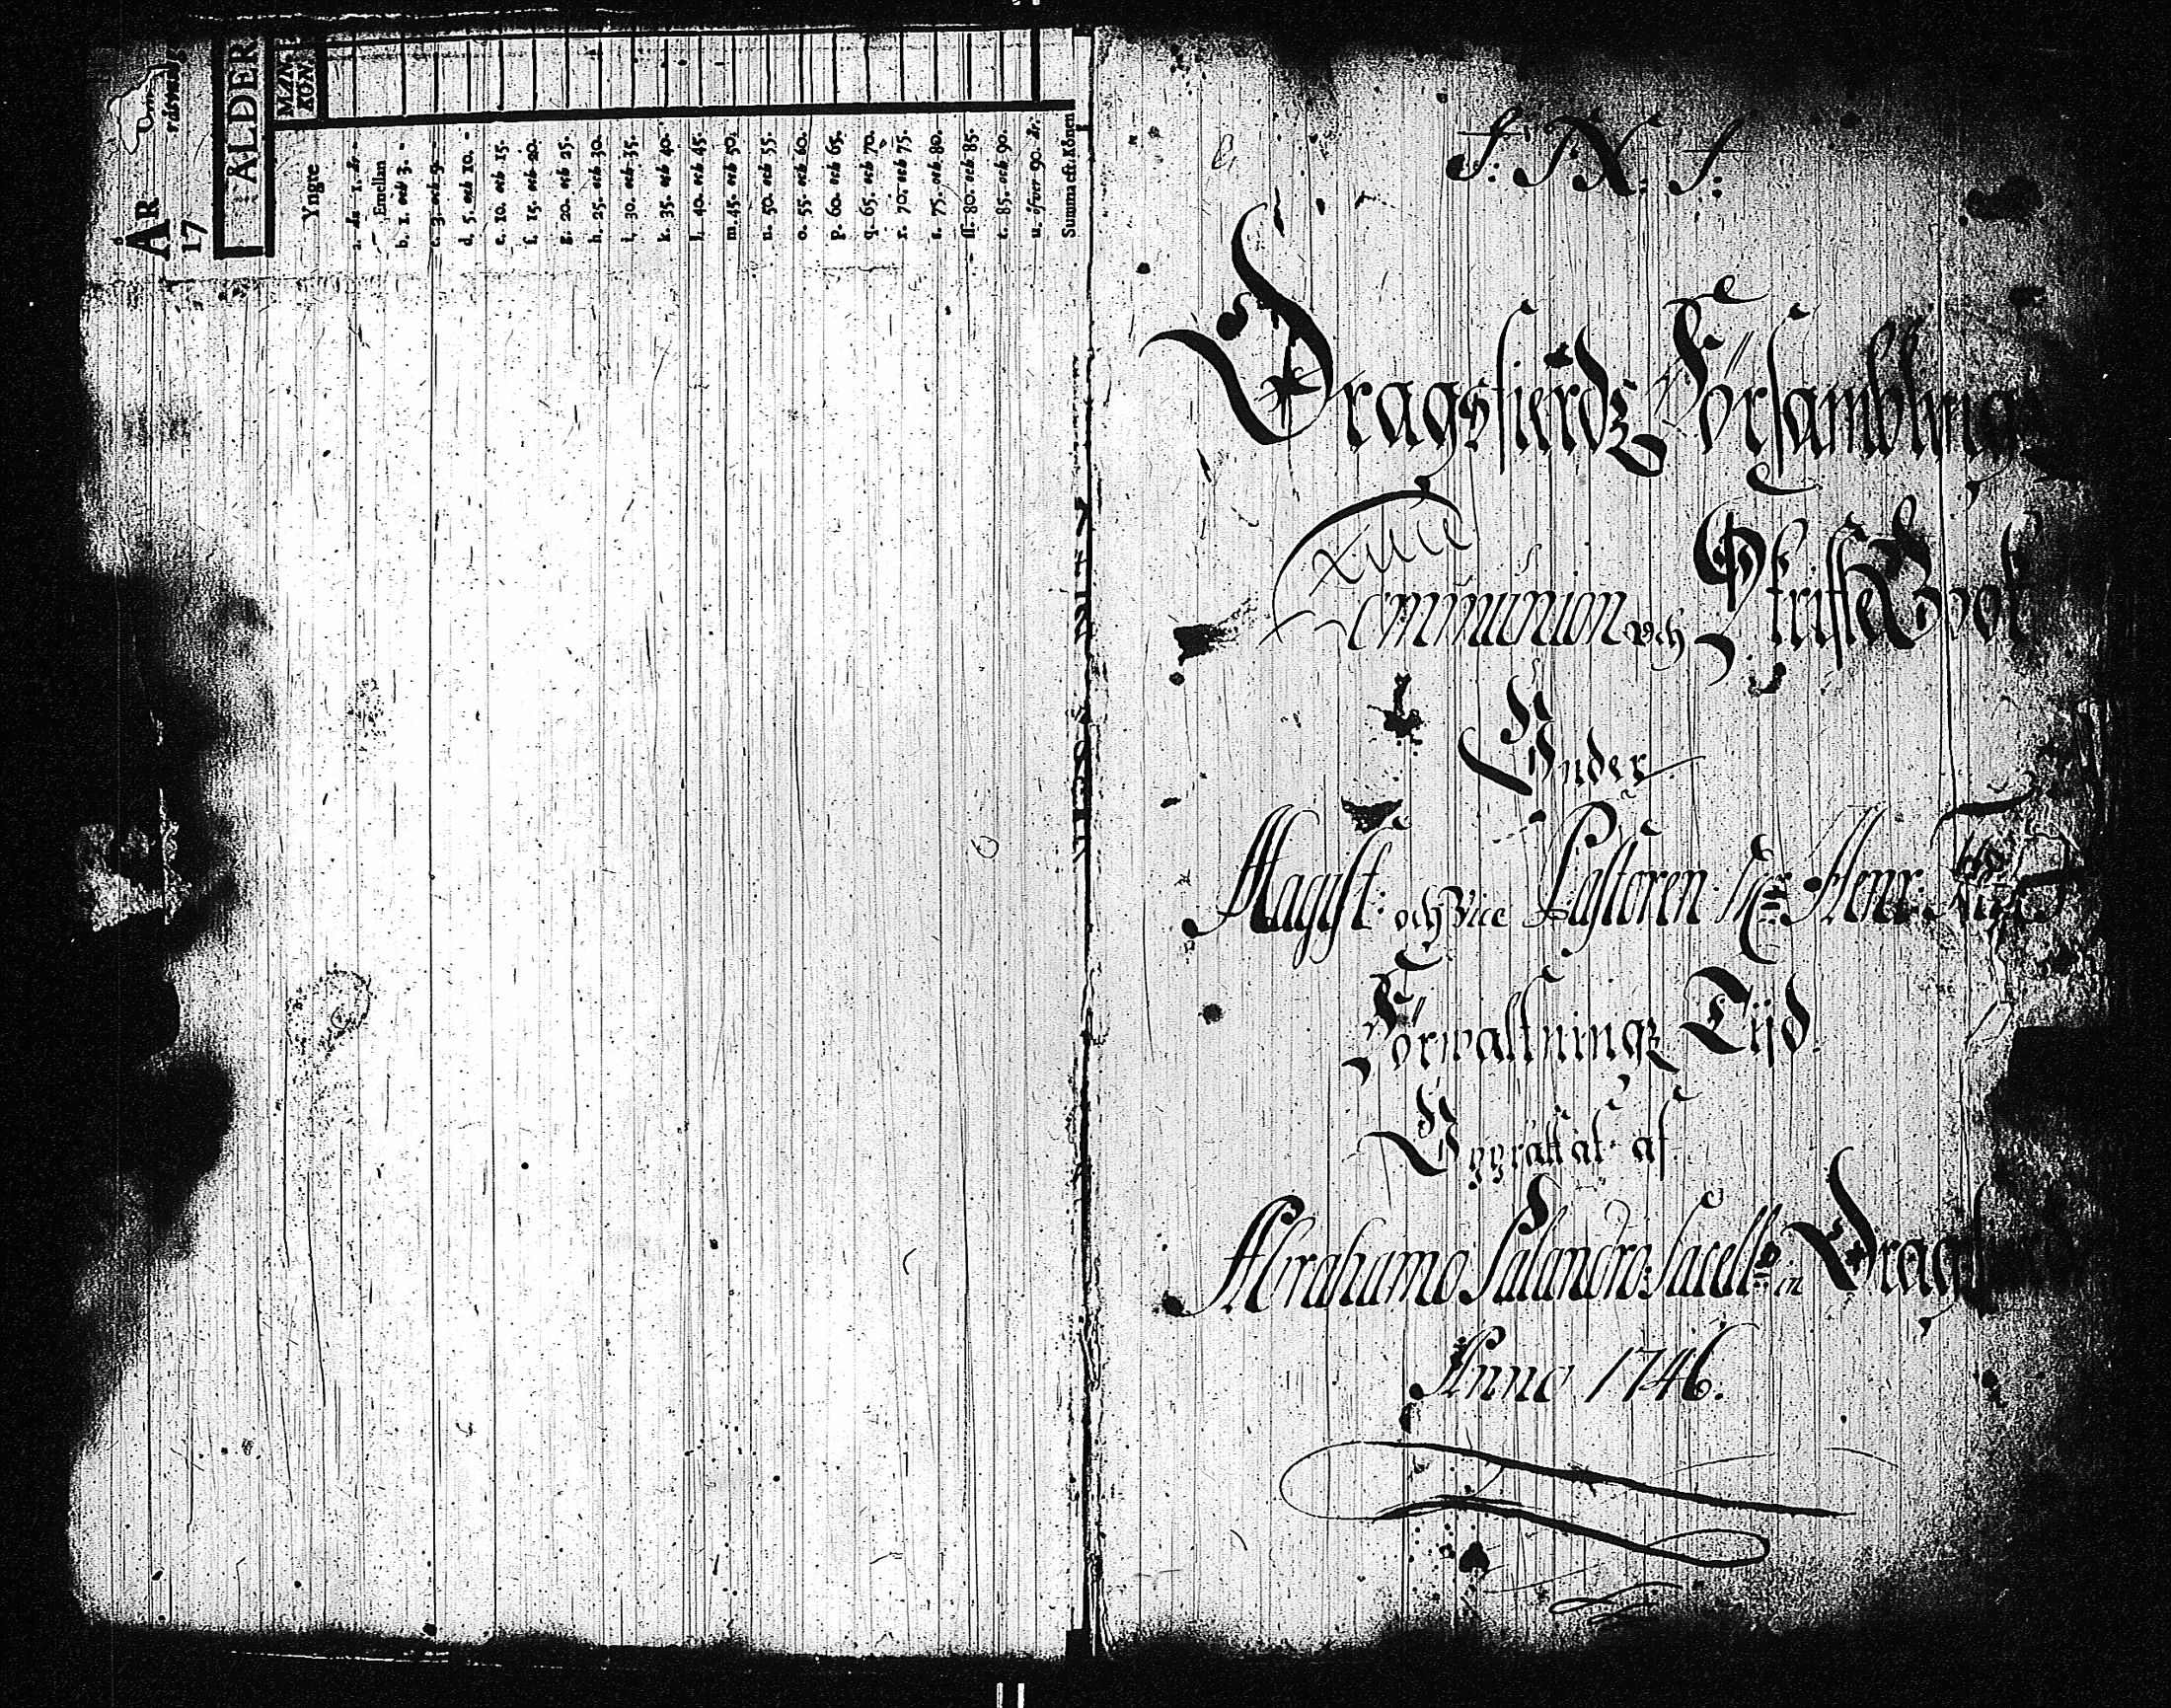 ÅR
17
ÅLDER
MAN
KÖN
Yngre
a. än 1. år -
Emellan
b. 1. och 3. -
c. 3. och 5. -
d. 5. och 10. -
e. 10. och 15.
f. 15. och 20.
g. 20. och 25.
h. 25. och 30.
i. 30. och 35.
k. 35. och 40.
l. 40. och 45.
m. 45. och 50.
n. 50. och 55.
o. 55. och 60.
p. 60. och 65.
q. 65. och 70.
r. 70. och 75.
s. 75. och 80.
ss. 80. och 85.
t. 85. och 90.
u. öfver 90. år.
Summa eft. Könen
J. N. J.
Dragsfierdz Församblings
Communion och Skrifte Book
Under
Magist: och Vice Pastoren Hr Henr:
Förwaltningz Tijd.
Upprättat af
Abrahamo Salandro Sacell: in Drags
Anno 1746.